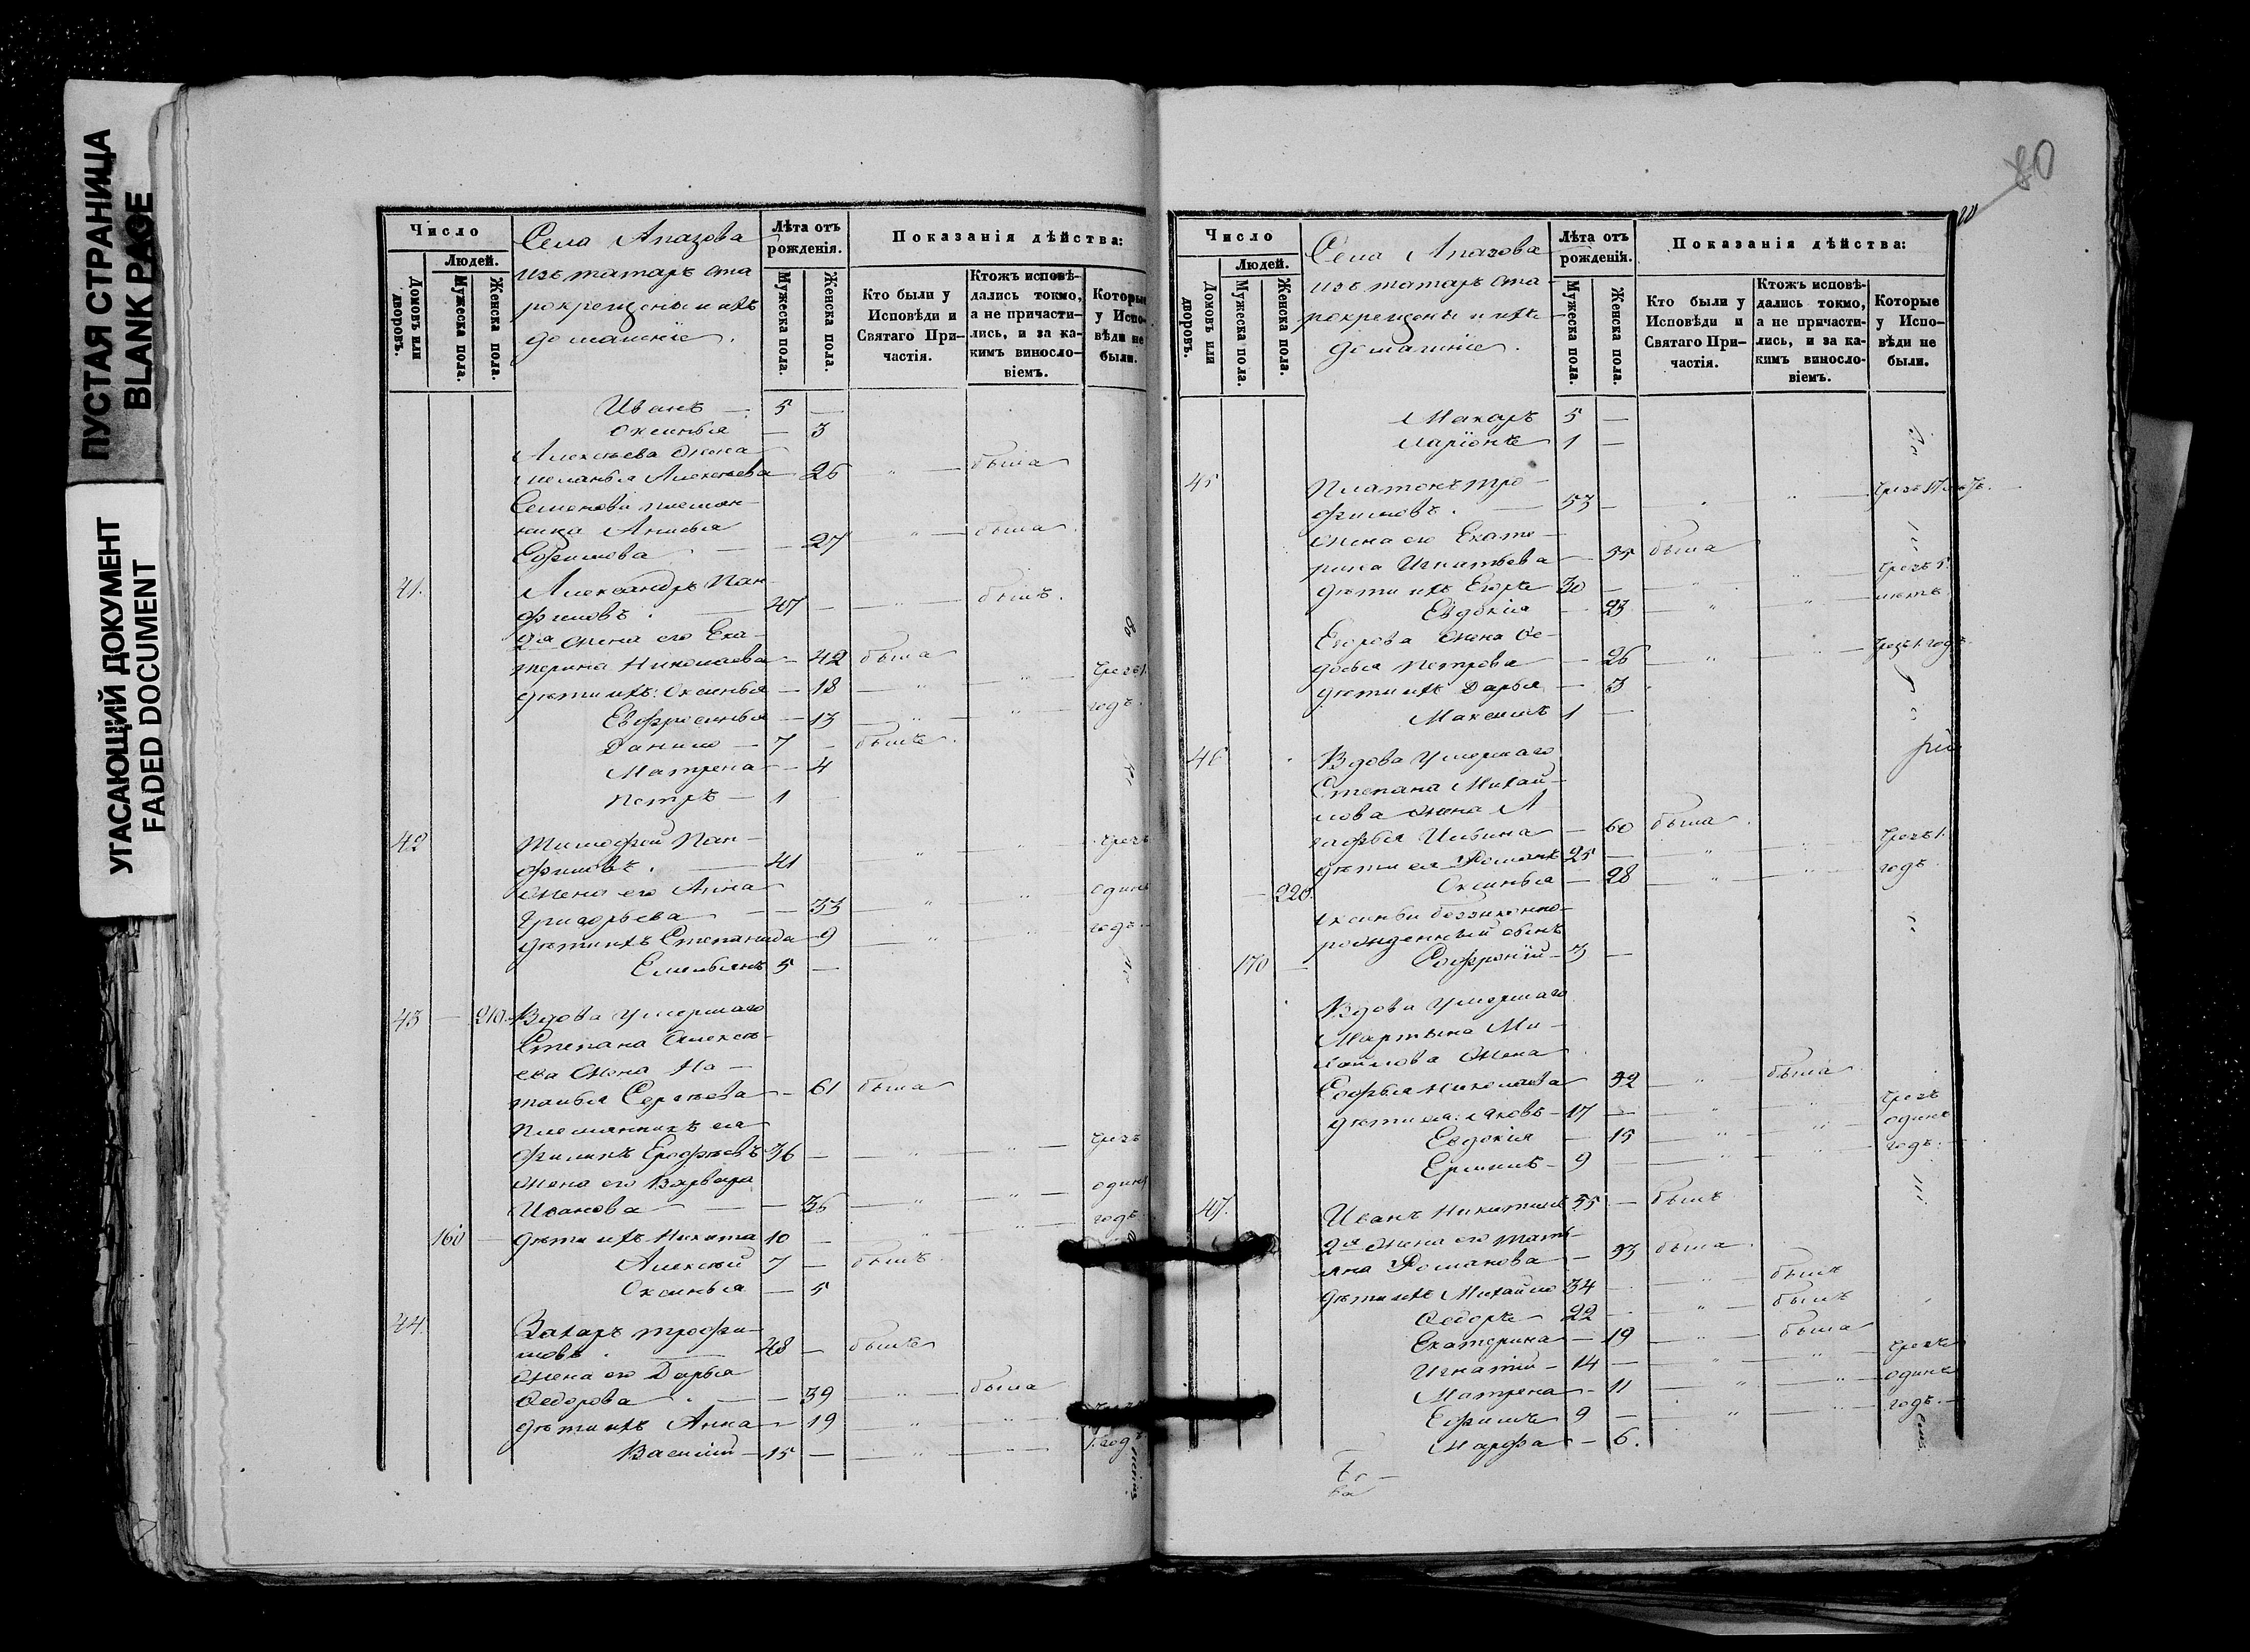 ПУСТАЯ СТРАНИЦА
BLANK PAGE
УГАСАЮЩИЙ ДОКУМЕНТ
FADED DOCUMENT
Число
Людей.
Домовъ или дворовъ.
Мужеска пола.
Женска пола.
Села Апазова
изъ татаръ ста
рокрещены и ихъ
домашніе.
Лѣта отъ рожденія.
Мужеска пола.
Женска пола.
Показанія дѣйства:
Кто были у Исповѣди и Святаго Причастія.
Ктожъ исповѣдались токмо, а не причастились, и за какимъ винословіемъ.
Которые у Исповѣди не были.
Иванъ — 5 —
Оксинья — 3
Алексѣева жена
Меланья Алексѣева — 26 " — была
Семенова племян-
ница Анисья
Ефимова — — 27 " — была.
41. Александръ Пан-
филовъ. — 47 — " — былъ.
2я жена его Ека-
терина Николаева — 42 была
дѣти ихъ: Оксинья — 18 — " — " — Чрезъ 1.
Евфросинья — 13 — " — " — годъ.
Данило — 7 — былъ.
Матрена — 4
Петръ — 1 —
42 Тимофей Пан-
филовъ. — 41 " " Чрезъ
жена его Анна
Григорьева — — 33 — " " одинъ
дѣти ихъ Степанида — 9 — " " годъ.
Емельянъ 5 —
43 — 210. Вдова умершаго
Степана Алексѣ-
ева жена На-
талья Сергѣева — 61 была
Племянникъ ея
Филипъ Ерофѣевъ 36 — " " — Чрезъ
жена его Варвара
Иванова — — 36 — " — " — одинъ
160 — дѣти ихъ Никита 10 — " " — годъ.
Алексѣй 7 — былъ.
Оксинья — 5
44. Захаръ Трофи-
мовъ. — 48 — былъ
жена его Дарья
Федорова — — 39 — " — была
дѣти ихъ Анна — 19 — " — "
Василій — 15 — — " — " 1. годъ
80
Число
Людей.
Домовъ или дворовъ.
Мужеска пола.
Женска пола.
Села Апазова
изъ татаръ ста-
рокрещены и ихъ
домашніе.
Лѣта отъ рожденія.
Мужеска пола.
Женска пола.
Показанія дѣйства:
Кто были у Исповѣди и Святаго Причастія.
Ктожъ исповѣдались токмо, а не причастились, и за какимъ винословіемъ.
Которые у Исповѣди не были.
Макаръ 5 —
Ларіонъ 1 —
45 Платонъ Тро-
фимовъ. — 53 — " "
жена его Екате-
рина Игнатьева — 55 была
дѣти ихъ Егоръ 30 — " " Чрезъ 5.
Евдокія — 23 — " " лѣтъ.
Егорова жена Фе-
досья Петрова — 26 — " " Чрезъ 1. годъ.
дѣти ихъ Дарья — 3
Максимъ 1 —
46 Вдова умершаго
Степана Михай-
лова жена А-
гафья Ильина — 60 была.
дѣти ея Романъ 25 — " " Чрезъ 1.
— 220. Оксинья — 28 — " " — годъ.
Оксиньи беззаконно-
рожденный сынъ
170 — Софроній — 3 —
Вдова умершаго
Мартына Ми-
хайлова жена
Софья Николаева 32 — " была
дѣти ея: Яковъ — 17 — " " Чрезъ
Евдокія — 15 — " " одинъ
Ермилъ — 9 — " " годъ.
47. Иванъ Никитинъ 55 — былъ
2я жена его Тать-
яна Романова — 33 была
дѣти ихъ Михайло 34 — " былъ
Федоръ 22 — " былъ
Екатерина — 19 — " — была
Игнатій — 14 — " " Чрезъ
Матрена — 11 — " " одинъ
Ефимъ 9 — " — " годъ.
Марфа — 6.